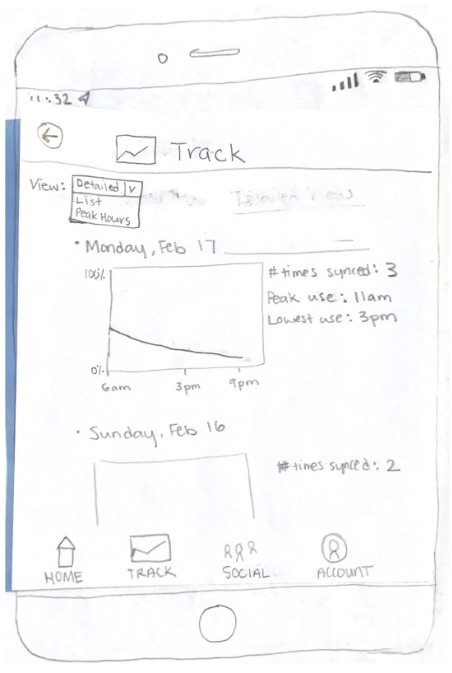 11:32
Track
View: Detailed v
List
Peak Hours
Detailed View
• Monday, Feb 17
# times synced: 3
Peak use: 11am
Lowest use: 3pm
100%
0%
6am 3pm 9pm
• Sunday, Feb 16
# times synced: 2
HOME TRACK SOCIAL ACCOUNT